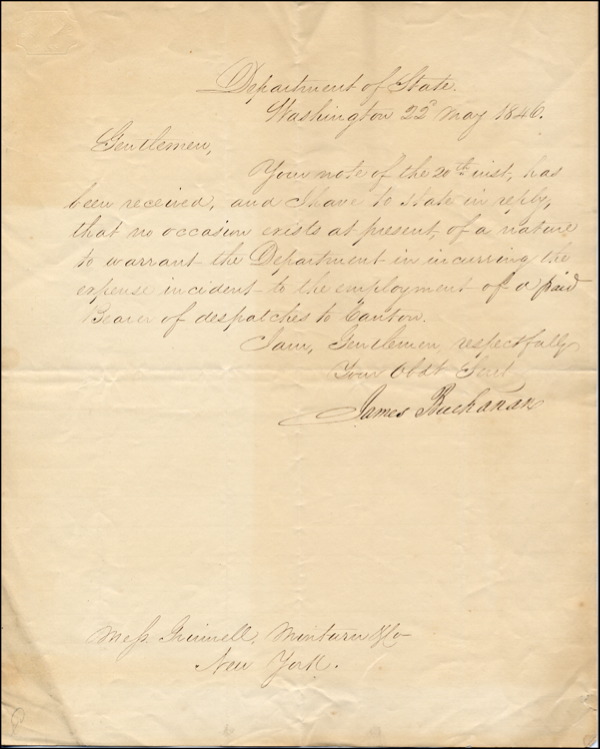 Department of State.
Washington 22d May 1846.
Gentlemen,
Your note of the 20th inst, has
been received, and I have to state in reply,
that no occasion exists at present, of a nature
to warrant the Department in incurring the
expense incident to the employment of a paid
Bearer of despatches to Canton.
I am, Gentlemen, respectfully
Your Obdt Servt
James Buchanan
Mess. Grinnell, Minturn & Co
New York.